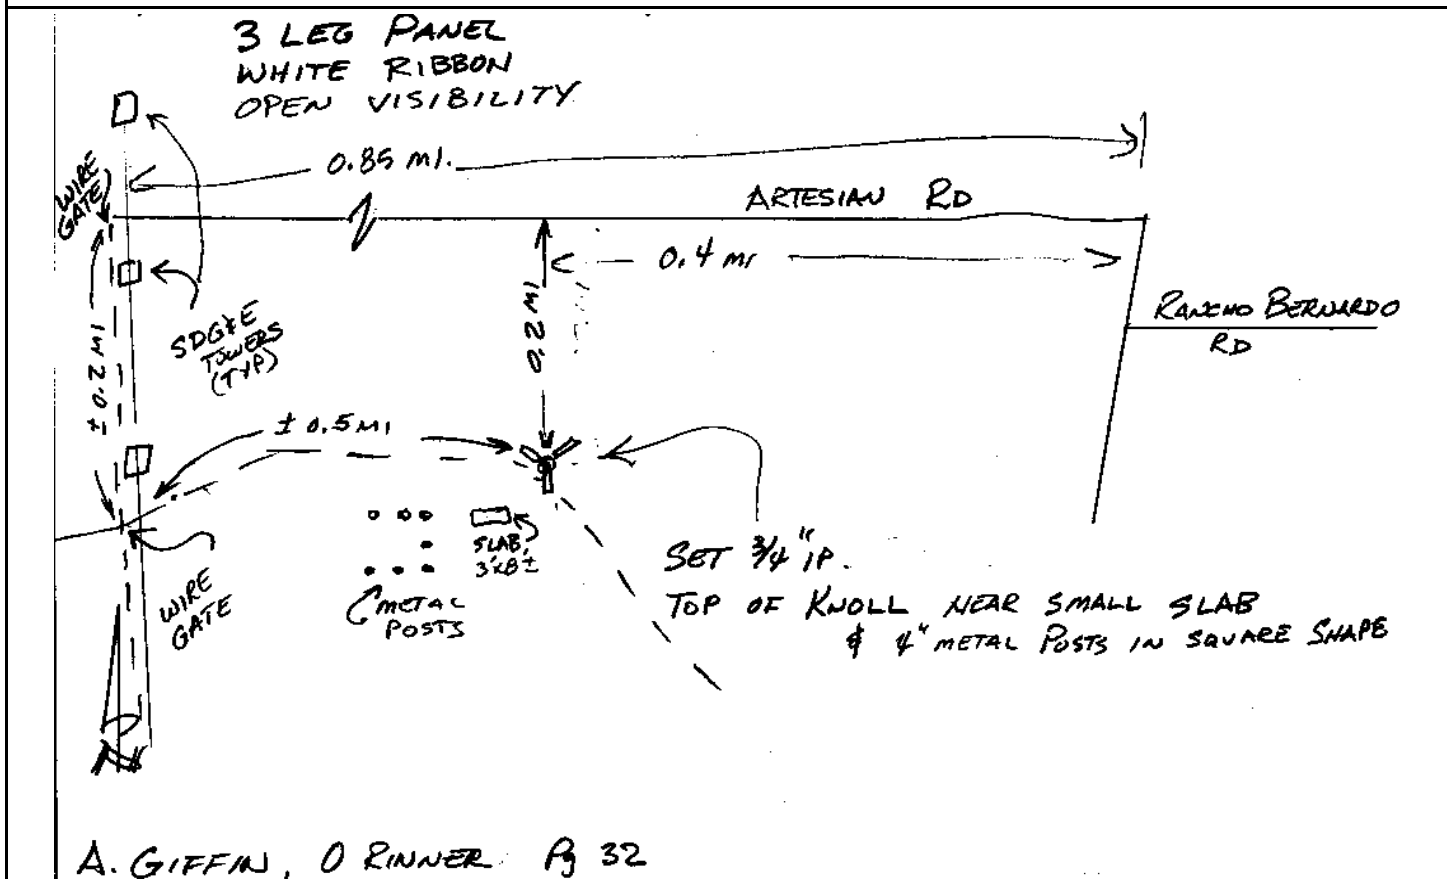 3 LEG PANEL
WHITE RIBBON
OPEN VISIBILITY
0.85 MI.
WIRE
GATE
ARTESIAN RD
0.4 MI
0.2 MI
RANCHO BERNARDO
RD
SDG&E
TOWERS
(TYP)
±0.2 MI
± 0.5 MI
SLAB,
3'x8'±
METAL
POSTS
WIRE
GATE
SET 3/4" IP.
TOP OF KNOLL NEAR SMALL SLAB
& 4" METAL POSTS IN SQUARE SHAPE
A. GIFFIN, O RINNER Pg 32